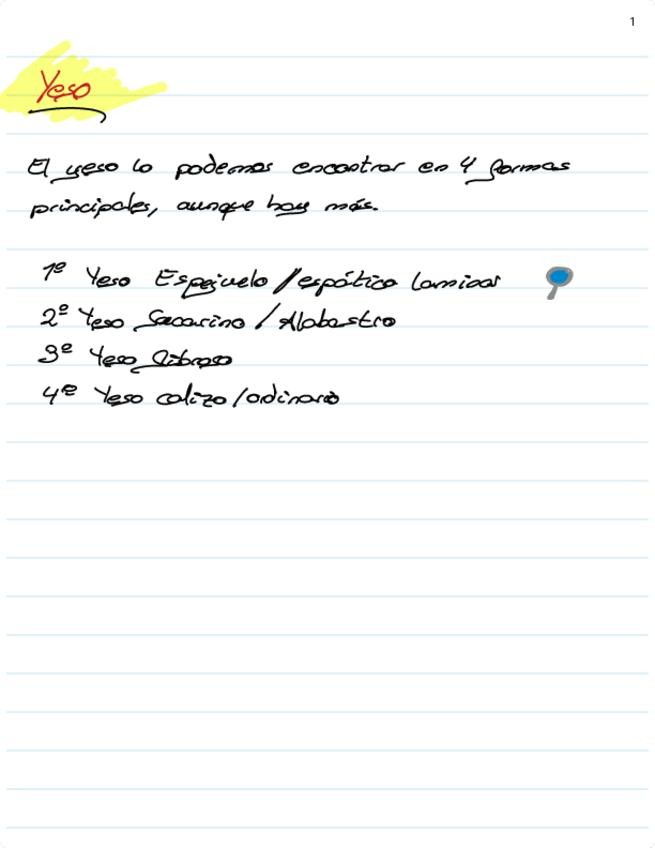 1
Yeso
El yeso lo podemos encontrar en 4 formas
principales, aunque hay más.
1º Yeso Espejuelo/espático laminar
2º Yeso Sacarino/Alabastro
3º Yeso fibroso
4º Yeso calizo/ordinario